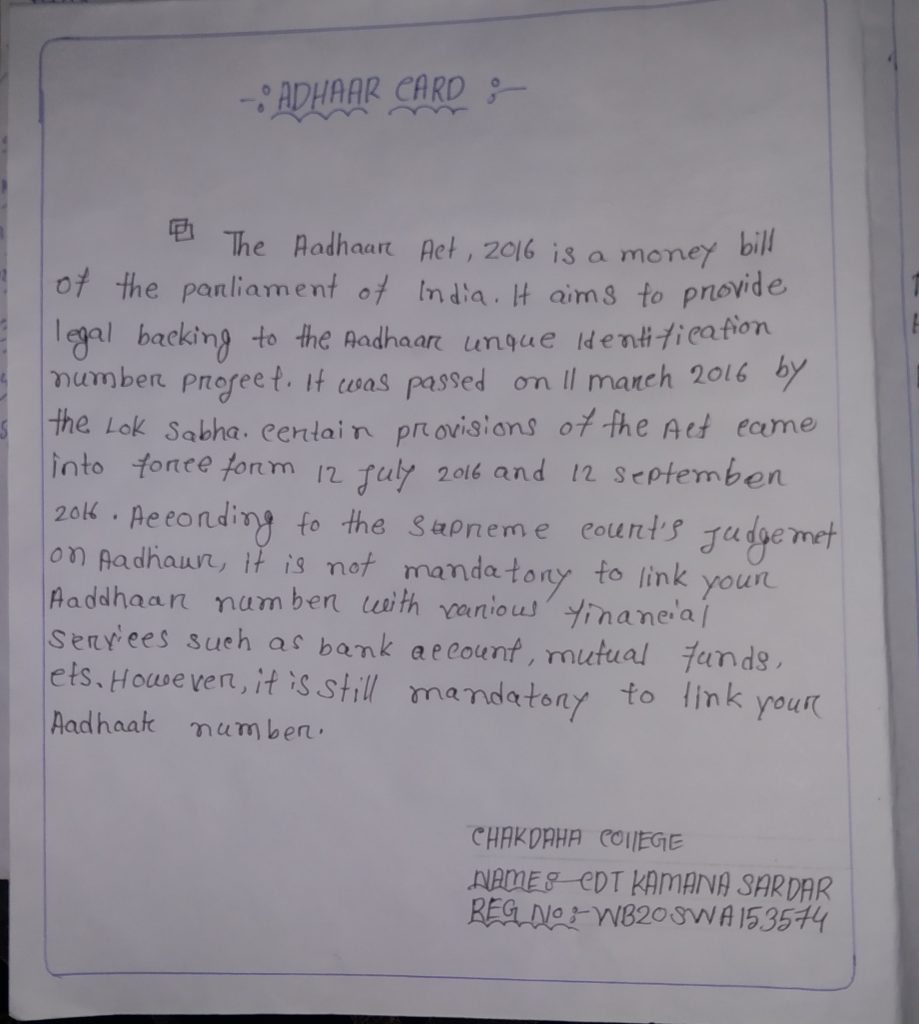 -: ADHAAR CARD :-
The Aadhaar Act, 2016 is a money bill
of the parliament of India. It aims to provide
legal backing to the Aadhaar unque Identification
number project. It was passed on 11 march 2016 by
the Lok Sabha. certain provisions of the Act came
into force form 12 july 2016 and 12 september
2016. According to the supreme court's judgemet
on Aadhaur, it is not mandatory to link your
Aaddhaar number with various financial
services such as bank account, mutual funds,
ets. However, it is still mandatory to link your
Aadhaar number.
CHAKDAHA COllEGE
NAME:- CDT KAMANA SARDAR
REG NO:- WB20SWA153574